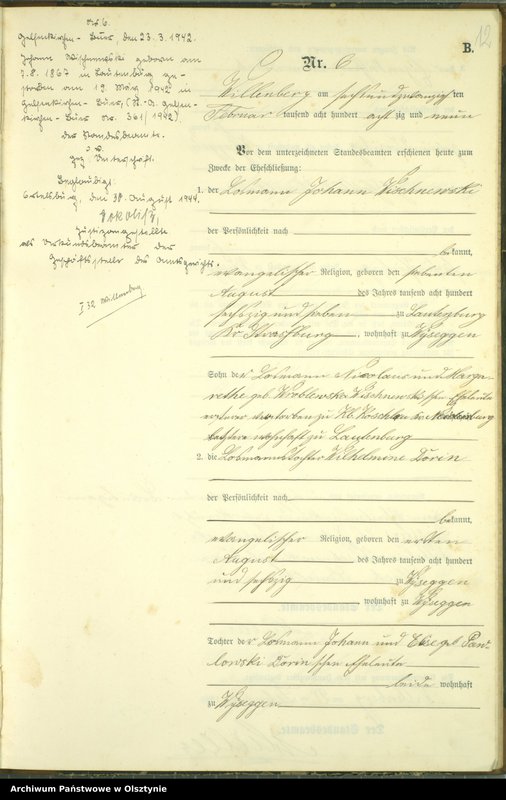 No 6.
Gelsenkirchen - Buer, den 23. 3. 1942.
Johann Wischnewski geboren am
7. 8. 1867 in Lautenburg ge-
storben am 19. März 1942 in
Gelsenkirchen - Buer, (St. A. Gelsen-
kirchen - Buer Nr. 361/1942)
der Standesbeamte.
gez. Unterschrift.
Beglaubigt:
Ortelsburg, den 30. August 1944.
Justizangestellte
als Urkundsbeamter der
Geschäftsstelle des Amtsgerichts.
I 32 Willenberg
12
B.
Nr. 6
Willenberg am sechsundzwanzig ten
Februar tausend acht hundert acht zig und neun
Vor dem unterzeichneten Standesbeamten erschienen heute zum
Zwecke der Eheschließung:
1. der Losmann Johann Wischnewski
der Persönlichkeit nach
bekannt,
evangelischer Religion, geboren den siebenten
August des Jahres tausend acht hundert
sechszig und sieben zu Lautenburg
Kr. Strassburg, wohnhaft zu Wyseggen
Sohn der Losmann Nicolaus und Marga-
rethe geb. Wroblewski Wischnewski'schen Eheleute
ersterer verstorben zu Kl. Koschlau Kr. Neidenburg
letztere wohnhaft zu Lautenburg
2. die Losmannstochter Wilhelmine Dorin
der Persönlichkeit nach
bekannt,
evangelischer Religion, geboren den ersten
August des Jahres tausend acht hundert
und sechszig zu Wyseggen
, wohnhaft zu Wyseggen
Tochter der Losmann Johann und Else geb. Paw-
lowski Dorin'schen Eheleute
beide wohnhaft
zu Wyseggen
Archiwum Państwowe w Olsztynie